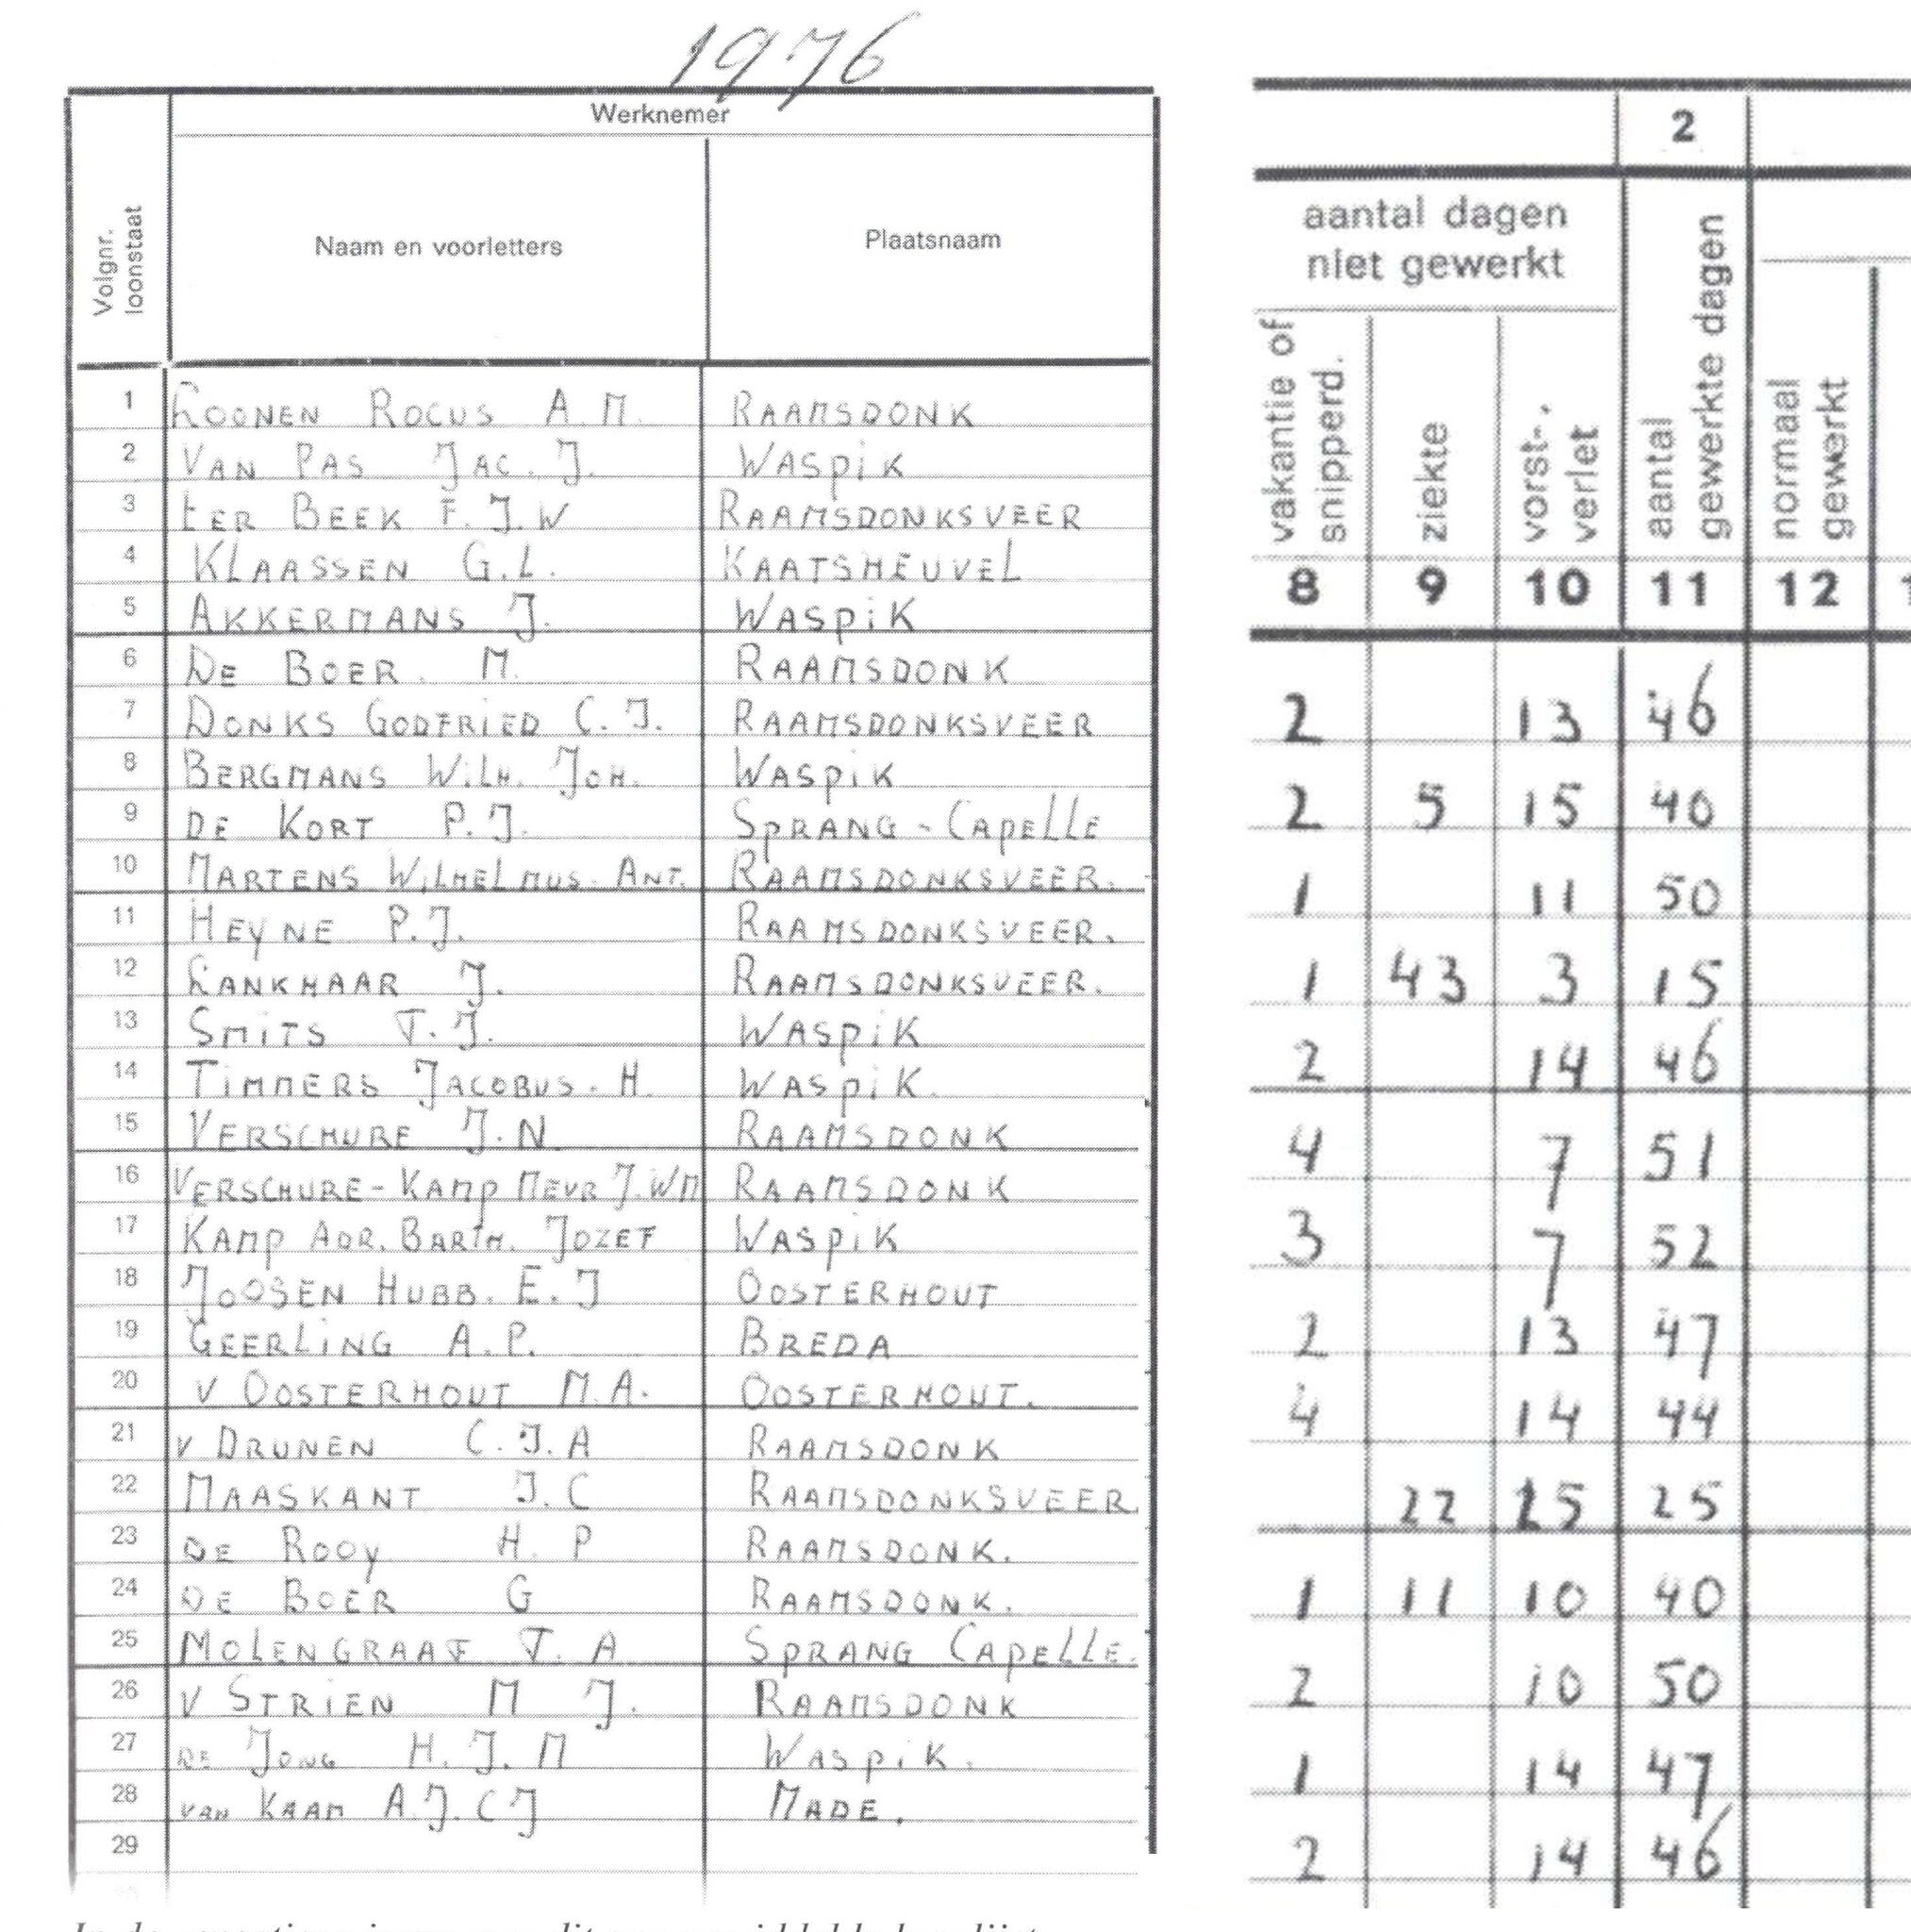 1976
Werknemer
Volgnr. loonstaat
Naam en voorletters
Plaatsnaam
1 LOONEN ROCUS A.M. RAAMSDONK
2 VAN PAS JAC. J. WASPIK
3 tER BEEK F.J.W RAAMSDONKSVEER
4 KLAASSEN G.L. KAATSHEUVEL
5 AKKERMANS J. WASPIK
6 DE BOER. M. RAAMSDONK
7 DONKS GODFRIED C.J. RAAMSDONKSVEER
8 BERGMANS WILH. JOH. WASPIK
9 DE KORT P.J. SPRANG-CAPELLE
10 MARTENS WILHELMUS. ANT. RAAMSDONKSVEER.
11 HEYNE P.J. RAAMSDONKSVEER.
12 LANKHAAR J. RAAMSDONKSVEER.
13 SMITS T.J. WASPIK
14 TIMMERS JACOBUS. H. WASPIK.
15 VERSCHURE J.N. RAAMSDONK
16 VERSCHURE-KAMP MEVR J.WM RAAMSDONK
17 KAMP ADR. BARTH. JOZEF WASPIK
18 JOOSEN HUBB. E.J OOSTERHOUT
19 GEERLING A.P. BREDA
20 v OOSTERHOUT M.A. OOSTERHOUT.
21 v DRUNEN C.J.A RAAMSDONK
22 MAASKANT J.C RAAMSDONKSVEER
23 DE ROOY H.P RAAMSDONK.
24 DE BOER G RAAMSDONK.
25 MOLENGRAAF T.A SPRANG CAPELLE.
26 v STRIEN M J. RAAMSDONK
27 DE JONG H.J.M WASPIK.
28 VAN KAAM A.J.C J MADE.
29
2
aantal dagen
niet gewerkt
vakantie of snipperd.
ziekte
vorst-, verlet
aantal gewerkte dagen
normaal gewerkt
8 9 10 11 12
2 13 46
2 5 15 40
1 11 50
1 43 3 15
2 14 46
4 7 51
3 7 52
2 13 47
4 14 44
22 15 25
1 11 10 40
2 10 50
1 14 47
2 14 46